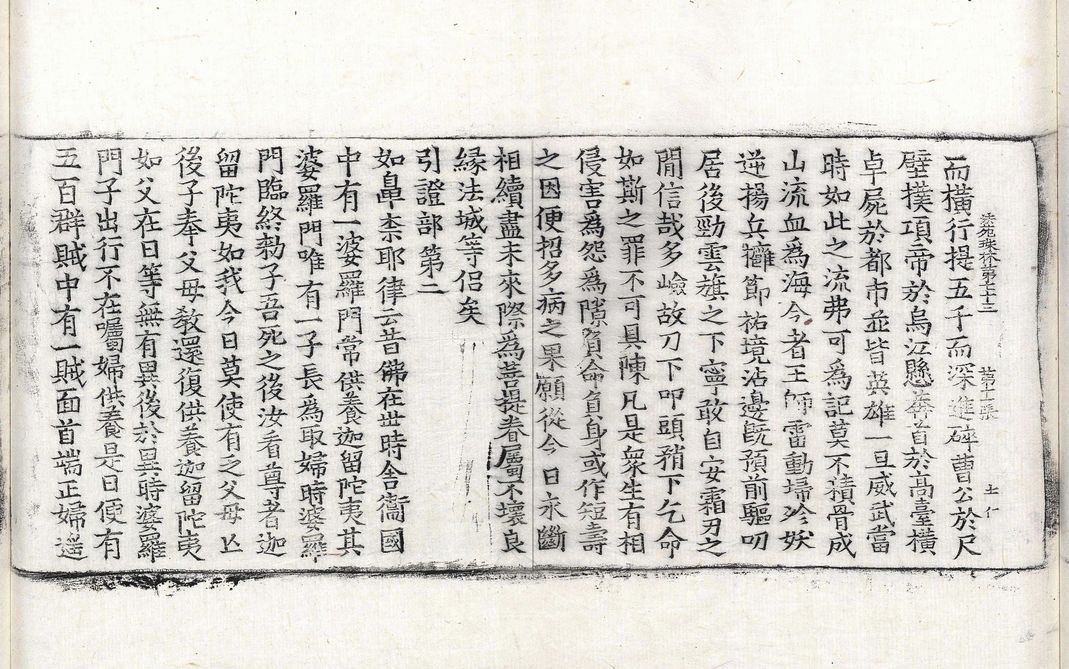 法苑珠林第七十三 第十二張 士仁
而橫行提五千而深進碎曹公於尺
壁撲項帝於烏江懸莽首於高臺橫
卓屍於都市並皆英雄一旦威武當
時如此之流弗可爲記莫不積骨成
山流血爲海今者王師雷動掃殄妖
逆揚兵擁節祐境沾邊旣預前驅叨
居後勁雲旗之下寧敢自安霜刃之
閒信哉多嶮故刀下叩頭矟下乞命
如斯之罪不可具陳凡是衆生有相
侵害爲怨爲隙負命負身或作短壽
之因便招多病之果願從今日永斷
相續盡未來際爲菩提眷屬不壞良
緣法城等侶矣
引證部第二
如鼻柰耶律云昔佛在世時舍衞國
中有一婆羅門常供養迦留陀夷其
婆羅門唯有一子長爲取婦時婆羅
門臨終勑子吾死之後汝看尊者迦
留陀夷如我今日莫使有之父母亾
後子奉父母敎還復供養迦留陀夷
如父在日等無有異後於異時婆羅
門子出行不在囑婦供養是日便有
五百群賊中有一賊面首端正婦遙